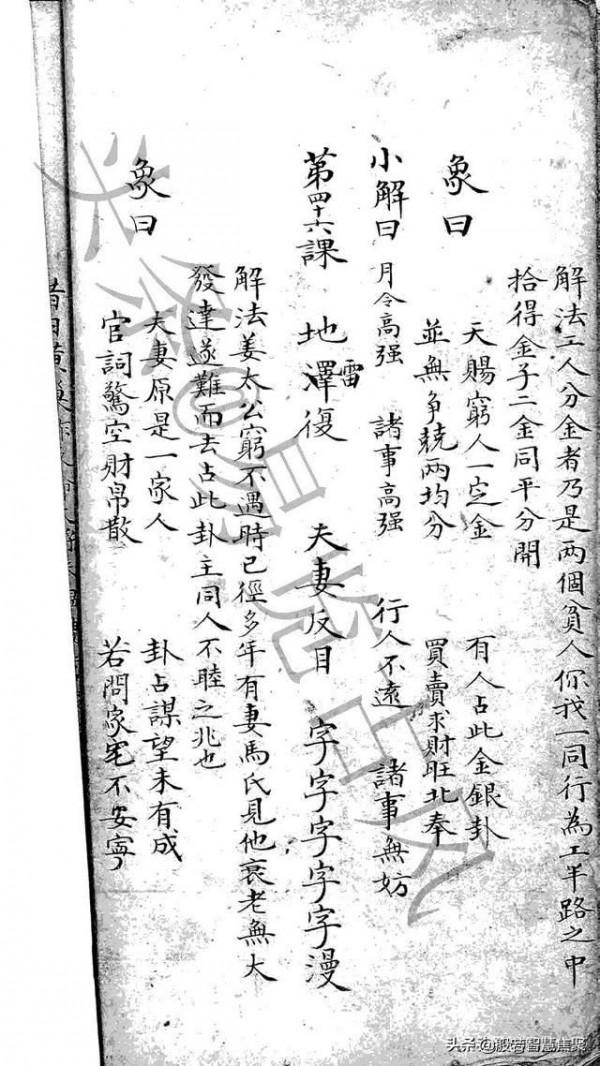 解法工人分金者乃是两個貧人你我一同行為工半路之中
拾得金子二金同平分開
象曰 天賜窮人一定金 有人占此金銀卦
並無争競两均分 買賣求財旺北奉
小解曰 月令高强 諸事高强 行人不遠 諸事無妨
第四十六課 地澤復 夫妻反目 字字字字字漫
雷
解法姜太公窮不遇時已徑多年有妻馬氏見他衰老無大
發達遂難而去占此卦主同人不睦之兆也
象曰 夫妻原是一家人 卦占謀望未有成
官詞驚空財帛散 若問家宅不安寧
头条@般若智慧焦聚